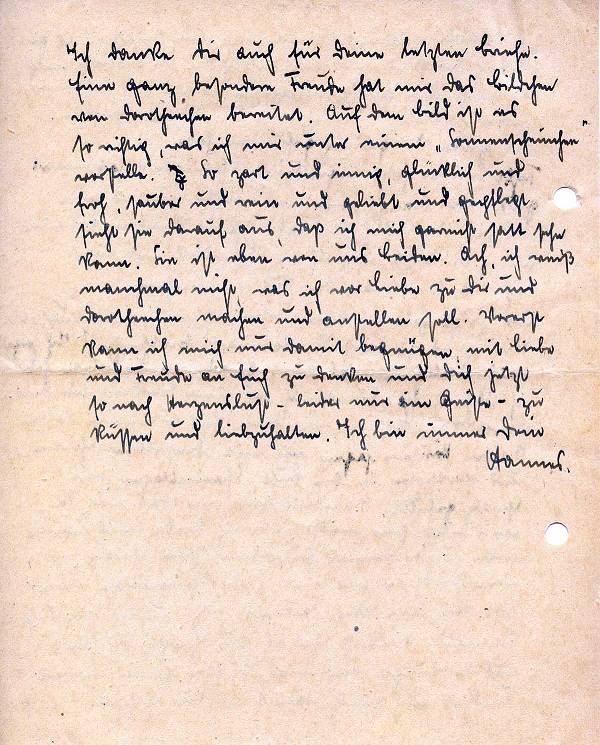 Ich danke dir auch für deine letzten briefe.
Eine ganz besondere Freude hat mir das bildchen
von dorotheechen bereitet. Auf dem bild ist es
so richtig, was ich mir unter einem „Sonnenscheinchen"
vorstelle. So zart und innig, glücklich und
froh, sauber und rein und geliebt und gepflegt
sieht sie darauf aus, daß ich mich garnicht satt sehn
kann. Sie ist eben von uns beiden. Ach, ich weiß
manchmal nicht, was ich vor liebe zu dir und
dorotheechen machen und anstellen soll. Vorerst
kann ich mich nur damit begnügen, mit liebe
und Freude an Euch zu denken und dich jetzt
so nach Herzenslust - leider nur im Geiste - zu
küssen und liebzuhalten. Ich bin immer dein
Hannes.